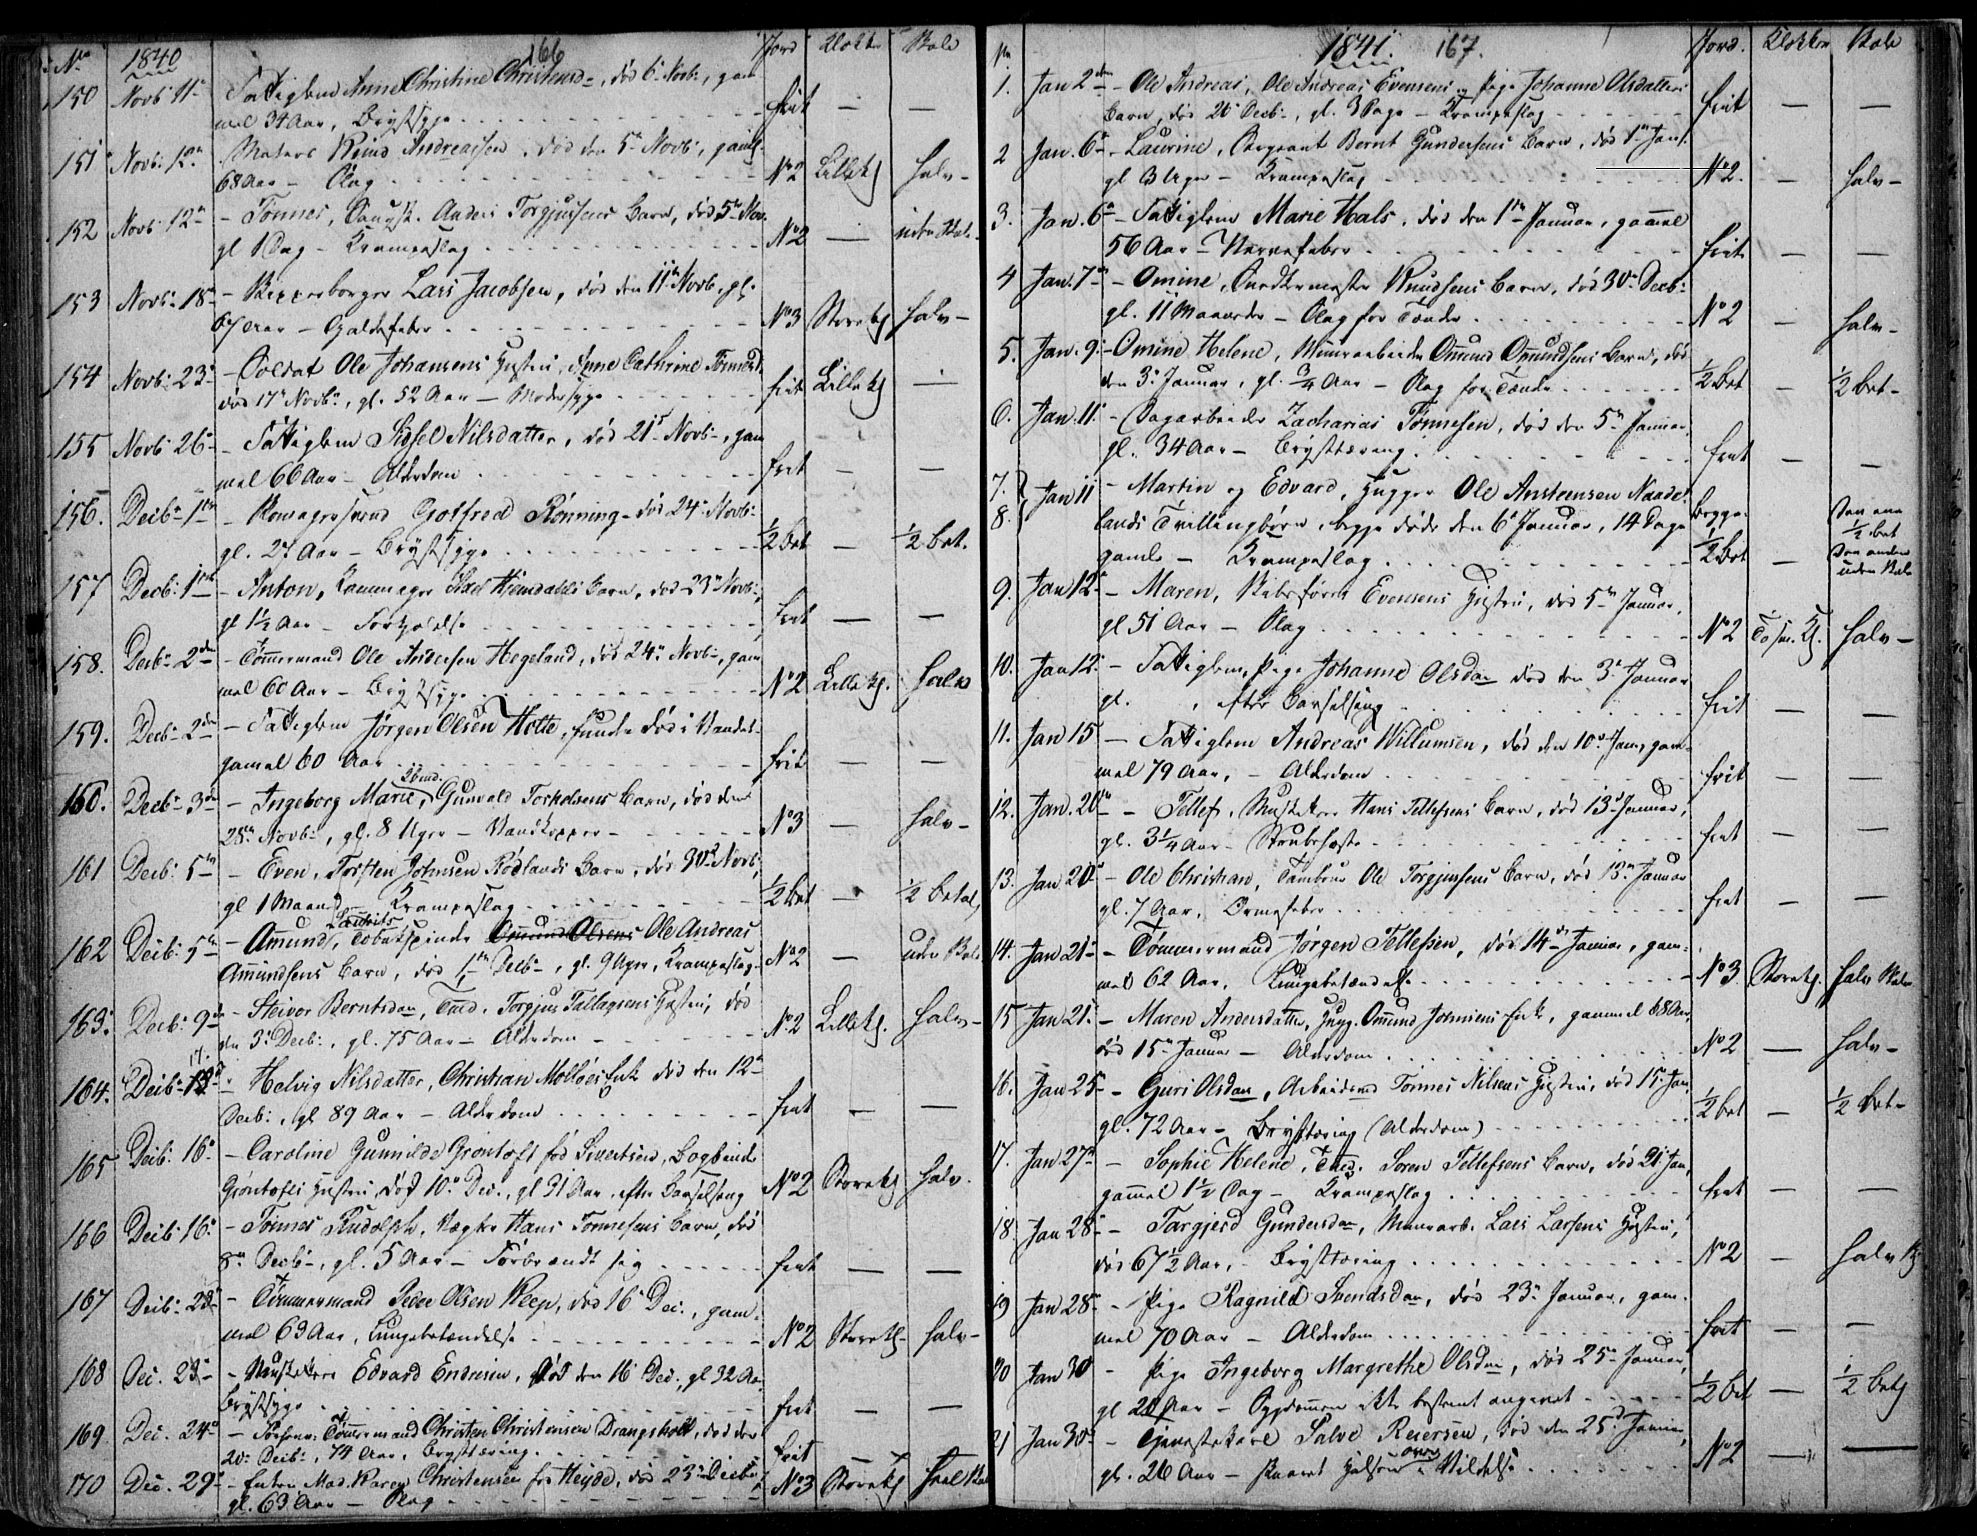 No 1840 166 Jord Klokker Bale
150 Novb 11te Fattiglem Anne Christine Christensd., død 6te Novb., gam
mel 34 Aar, Brystsyge frit — —
151 Novb. 12te Matros Knud Andreassen, død den 5te Novb., gaml.
68 Aar – Slag No 2 Lille Kl halv –
152 Novb. 12te – Tønnes, Anders Torgjussens Barn, død 5te Nov.
gl 1 Dag – Krampeslag No 2 — uden Bale
153 Novb. 18te – Lars Jacobsen, død den 11te Novb., gl.
67 Aar – Galdefeber No 3 Store Kl halv –
154 Novb. 23de – Soldat Ole Johansens Hustru, Anne Cathrine Tønnesd.
død 17de Novb., gl. 52 Aar – Modersyge frit Lille Kl —
155 Novb 26de – Fattiglem Sidsel Nilsdatter, død 21de Novb., gam
mel 66 Aar – Alderdom frit — —
156. Decb. 1ste – Gotfred Rønning – død 24de Novb.
gl. 27 Aar – Brystsyge ½ Bet — ½ bet.
157 Decb. 1ste – Anton, Hjemdahls Barn, død 23de Novb.,
gl 1½ Aar – Forkjølelse frit — —
158. Decb. 2den – Tømmermand Ole Andersen Hegeland, død 24de Novb., gam
mel 60 Aar – Brystsyge No 2 Lille Kl. halv
159. Decb. 2den – Fattiglem Jørgen Olsen Holte, funden død i Vandet
gamel 60 Aar frit — —
160. Decb. 3die – Ingeborg Marie, Gunvald Torkelsens Barn, død den
28de Novb., gl. 8 Uger – Vandkopper – No 3 — halv –
161 Decb. 5te – Even, Torsten Johnsen Rødlands Barn, død 30te Novb.,
gl 1 Maaned – Krampeslag ½ Bet — ½ betal,
Laurits
162 Decb. 5te – Amund, Tobakspinder Omund Olsens Ole Andreas
Amundsens Barn, død 1ste Decb., gl. 9 Uger, Krampeslag No 2 — uden Bale
163. Decb. 9de – Steivor Berntsdr., Tmd. Torgjus Tallagsens Hustru, død
den 3de Decb., gl. 75 Aar – Alderdom – No 2 Lille Kl. halv –
164. Decb. – Helvig Nilsdatter, Christian Molløes Enke død den 12te
Decb., gl 89 Aar – Alderdom frit — —
165 Decb. 16de – Caroline Gunnilde Grøntoft fød Sivertsen, Bogbinder
Grøntofts Hustru død 10de Dec., gl 31 Aar, efter Barselseng No 2 Store Kl halv.
166 Decb 16de – Tønnes Rudolph, Vægter Hans Tønnesens Barn, død
8de Decb., gl. 5 Aar – Forbrændt sig frit — —
167 Decb. 23de – Tømmermand Peder Olsen Kleep, død 16de Dec., gam
mel 63 Aar, Lungebetændelse No 2 Store Kl. halv –
168 Dec. 23de – Musketere Edvard Endresen, død den 16 Dec., gl 32 Aar,
Brystsyge frit — —
169. Dec. 24de – Tømmermand Christen Christensen Drangsholt, død den
20de Decb., 74 Aar, Brysttæring frit — —
170 Dec. 29de – Enken Mad. Karen Christensen fød Heyde, død 23de Decb.,
gl. 63 Aar – Slag No 3 Store Kl heel Bale
No 1841. 167. Jord. Klokker Bale
1. Jan 2den – Ole Andreas, Ole Andreas Evensens og Pige Johanne Olsdatters
Barn, død 26 Decb., gl. 3 Dage – Krampeslag frit — —
2 Jan. 6te – Laurine, Sergeant Bernt Gundersens Barn, død 1ste Jan.
gl 3 Uger – Krampeslag No 2. — halv –
3. Jan. 6te – Fattiglem Marie Hals, død den 1ste Januar, gammel
56 Aar – Nervefeber frit — —
4 Jan. 7de – Omine, Snedkermester Knudsens Barn, død 30te Decb.
gl. 11 Maaneder – Slag for Tænder No 2 — halv –
5. Jan. 9de – Omine Helene, Muurarbeider Omund Omundsens Barn, død
den 3de Januar, gl. ¾ Aar – Slag for Tænder ½ Bet — ½ bet –
6. Jan. 11te – Dagarbeider Zacharias Tønnesen, død den 5te Januar,
gl. 34 Aar – Brysttæring frit — —
7. 8. Jan 11 – Martin og Edvard, Hugger Ole Anstensen Naade
lands Tvillingbørn, begge døde den 6te Januar, 14 Dage
gamle – Krampeslag Begge ½ Bet — den ene ½ bet den anden uden Bale
9. Jan 12te – Maren, Skibsfører Evensens Hustru, død 5te Januar,
gl 51 Aar – Slag No 2 To sm. Kl. halv –
10. Jan 12te – Fattiglem, Pige Johanne Olsdr død den 3de Januar
gl. , efter Barselseng frit — —
11. Jan 15 – Fattiglem Andreas Willumsen, død den 10de Jan, gam
mel 79 Aar, – Alderdom frit — —
12. Jan. 20de – Tellef, Musketere Hans Tellefsens Barn, død 13de Januar,
gl. 3¼ Aar – Strubehoste frit — —
13. Jan 20de – Ole Christian, Tambour Ole Torgjussens Barn, død 13de Januar
gl. 7 Aar, Ormefeber frit — —
14. Jan 21de – Tømmermand Jørgen Tellefsen, død 14de Januar, gam
mel 62 Aar, Lungebetændelse No 3 Store Kl. halv Bale
15 Jan 21de – Maren Andersdatter, Hugg. Omund Johnsens Enke, gammel 88 Aar,
død 15de Januar – Alderdom No 2 — halv –
16. Jan 25 – Guri Olsdr, Arbeidsmd Tønnes Nilsens Hustru, død 15. Jan,
gl. 72 Aar – Brysttæring (Alderdom) ½ bet — ½ bet –
17. Jan 27de – Sophie Helene, Tmd. Søren Tellefsens Barn, død 21. Jan,
gammel 1½ Dag – Krampeslag frit — —
18. Jan 28de – Targjerd Gundersdr, Muurarb. Lars Larsens Hustru,
død 67½ Aar, – Brysttæring No 2 — halv
19 Jan 28de – Pige Ragnild Svendsdr, død 23de Januar, gam
mel 70 Aar – Alderdom frit — —
20 Jan 30 – Pige Ingeborg Margrethe Olsdr, død 25de Januar,
gl Aar – Sygdommen ikke bestemt angivet ½ bet — ½ bet
21 Jan 30te – Tjenestekarl Salve Reiersen, død den 25de Januar,
gl. 26 Aar – skaaret Halsen over i Vildelse No 2 — —